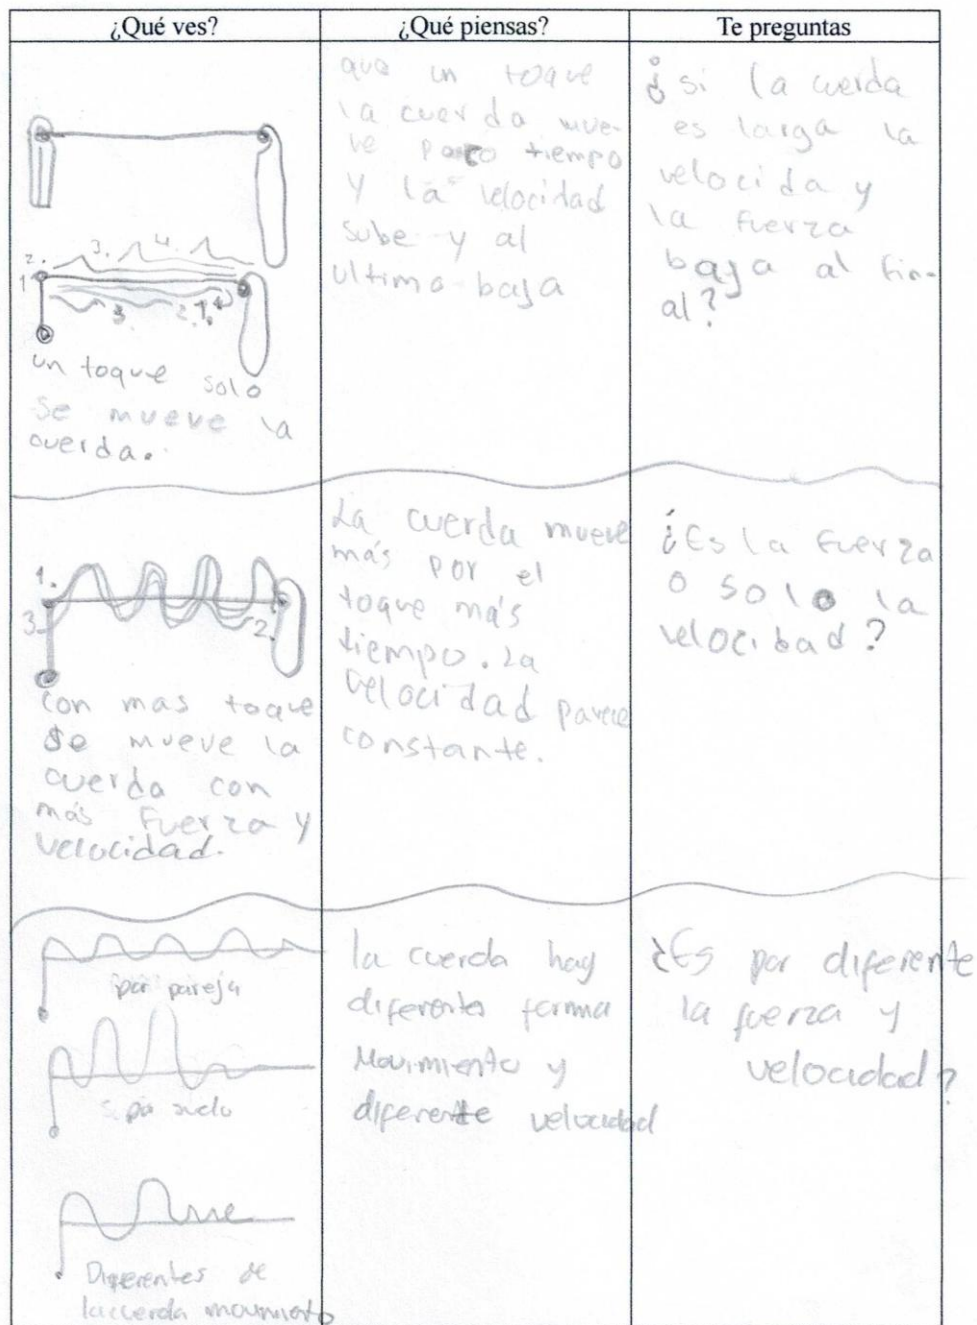 ¿Qué ves?
¿Qué piensas?
Te preguntas
2. 3. 4.
1
3. 2. 1. 4
un toque solo
se mueve la
cuerda.
que un toque
la cuerda mue-
ve poco tiempo
y la velocidad
sube y al
ultimo baja
¿si la cuerda
es larga la
velocida y
la fuerza
baja al fin-
al?
1.
3. 2.
Con mas toque
se mueve la
cuerda con
más fuerza y
velocidad.
La cuerda mueve
más por el
toque más
tiempo. La
velocidad parece
constante.
¿Es la fuerza
o solo la
velocidad?
por pareja
por suelo
Diferentes de
la cuerda movimiento
la cuerda hay
diferentes forma
Movimiento y
diferente velocidad
¿Es por diferente
la fuerza y
velocidad?